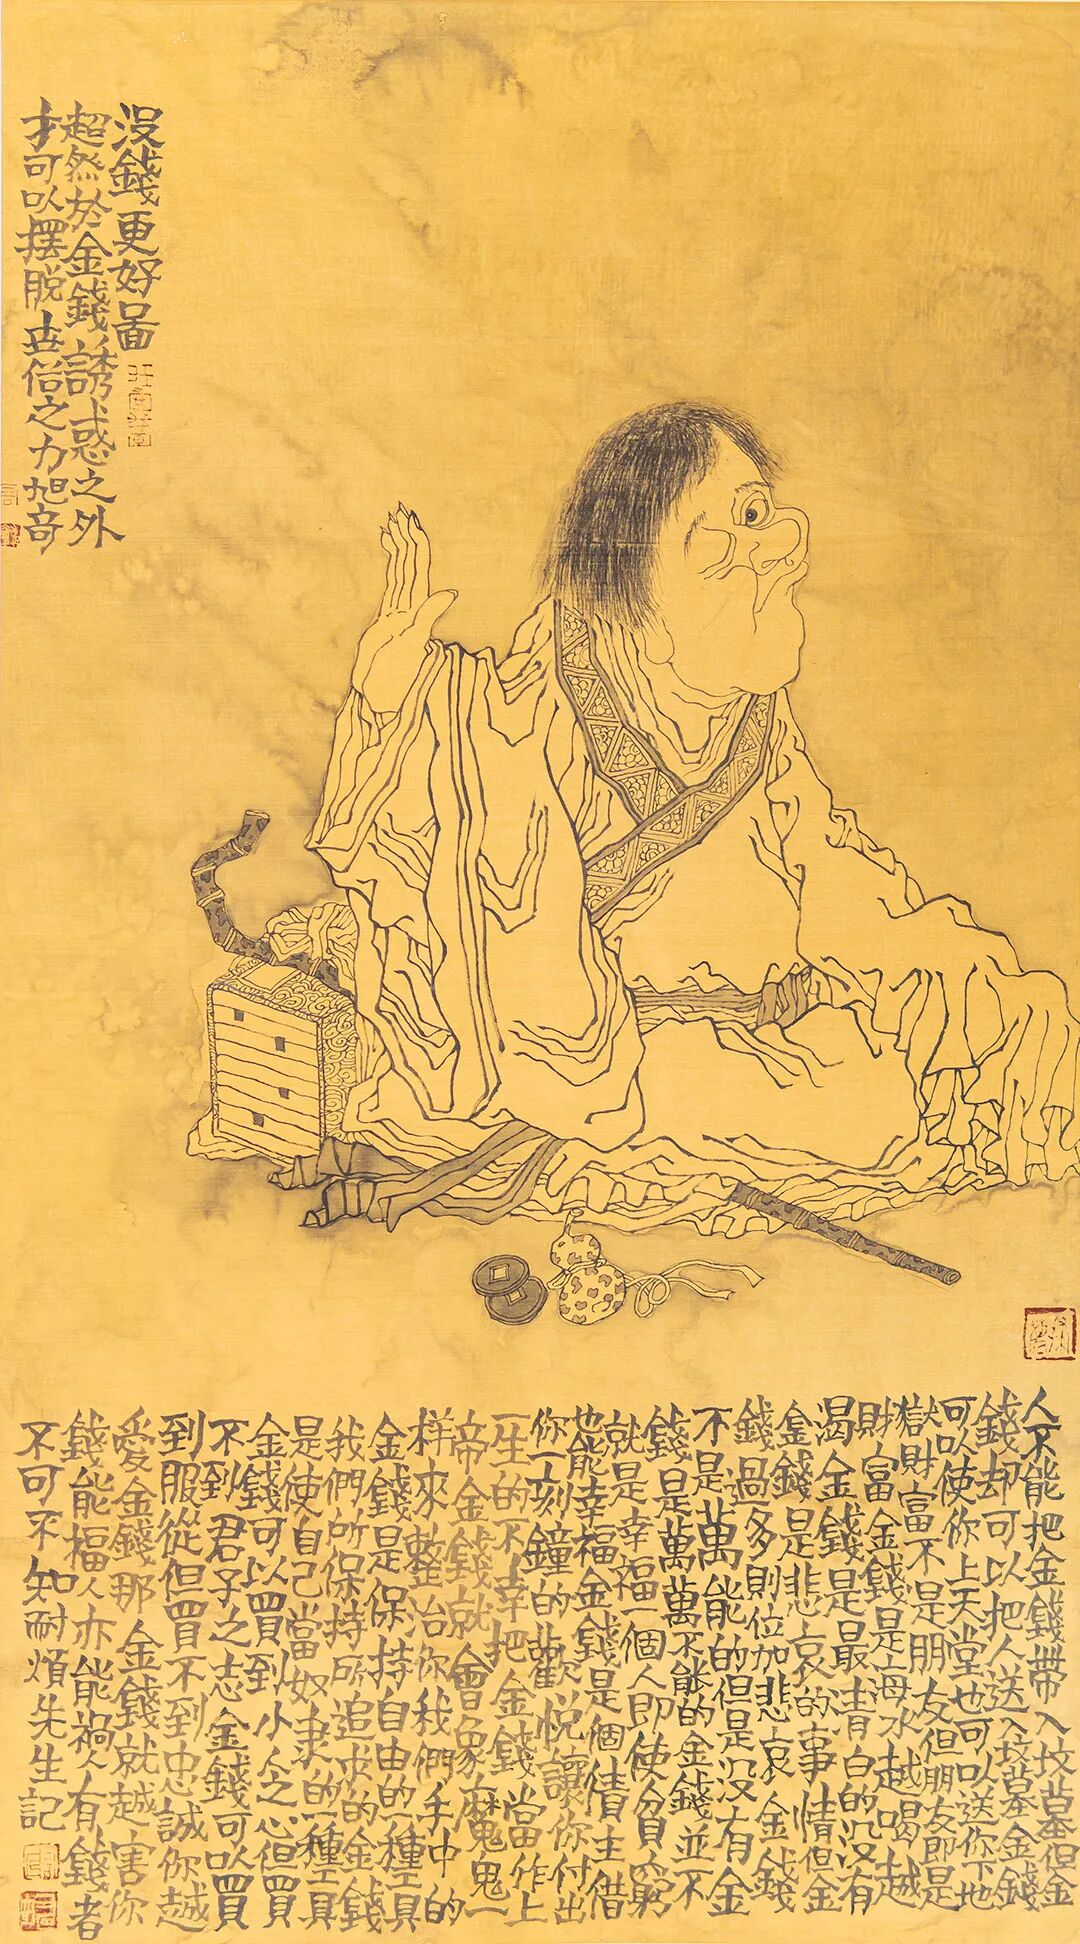 没錢更好啚
超然於金錢誘惑之外
才可以摆脱世俗之力旭奇
人不能把金錢帶入坟墓但金
錢却可以把人送入坟墓金錢
可以使你上天堂也可以送你下地
獄財富不是朋友但朋友即是
財富金錢是海水越喝越
渴金錢是最清白的没有
金錢是悲哀的事情但金
錢過多則位加悲哀金錢
不是萬能的但是没有金
錢是萬萬不能的金錢並不
就是幸福一個人即使貧窮
也能幸福金錢是個債主借
你一刻鐘的歡悦讓你付出
一生的不幸把金錢當作上
帝金錢就會象魔鬼一
样來整治你我們手中的
金錢是保持自由的一種工具
我們所保持所追求的金錢
是使自己當奴隶的一種工具
金錢可以買到小人之心但買
不到君子之志金錢可以買
到服從但買不到忠誠你越
愛金錢那金錢就越害你
錢能福人亦能祸人有錢者
不可不知耐煩先生記